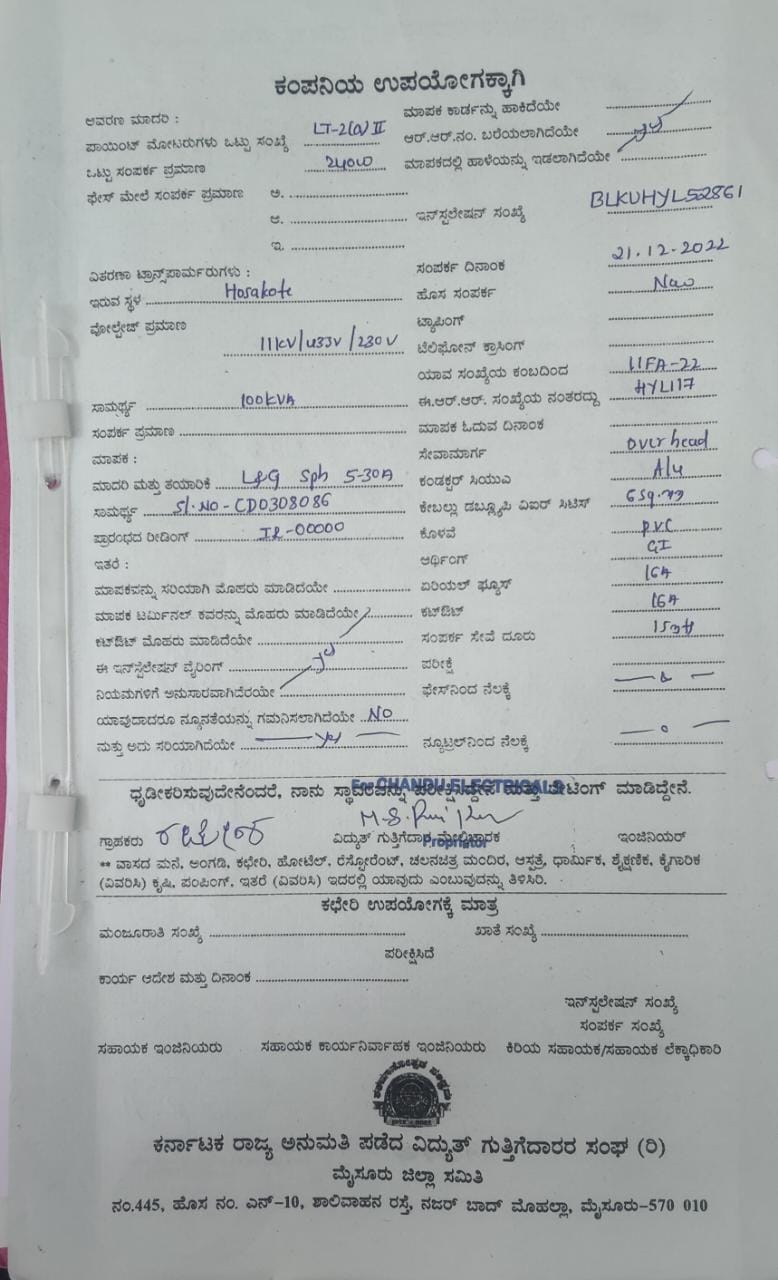 ಕಂಪನಿಯ ಉಪಯೋಗಕ್ಕಾಗಿ
ಆವರಣ ಮಾದರಿ : LT-2(a) II ಮಾಪಕ ಕಾರ್ಡನ್ನು ಹಾಕಿದೆಯೇ
ಪಾಯಿಂಟ್ ಮೋಟರುಗಳು ಒಟ್ಟು ಸಂಖ್ಯೆ ಆರ್.ಆರ್.ನಂ. ಬರೆಯಲಾಗಿದೆಯೇ
ಒಟ್ಟು ಸಂಪರ್ಕ ಪ್ರಮಾಣ 240W ಮಾಪಕದಲ್ಲಿ ಹಾಳೆಯನ್ನು ಇಡಲಾಗಿದೆಯೇ
ಫೇಸ್ ಮೇಲೆ ಸಂಪರ್ಕ ಪ್ರಮಾಣ ಅ.
ಆ. ಇನ್‌ಸ್ಟಲೇಷನ್ ಸಂಖ್ಯೆ BLKUHYL52861
ಇ.
ವಿತರಣಾ ಟ್ರಾನ್ಸ್‌ಪಾರ್ಮರುಗಳು : ಸಂಪರ್ಕ ದಿನಾಂಕ 21.12.2022
ಇರುವ ಸ್ಥಳ Hosakote ಹೊಸ ಸಂಪರ್ಕ New
ವೋಲ್ಟೇಜ್ ಪ್ರಮಾಣ 11KV/433V/230V ಟ್ಯಾಪಿಂಗ್
ಟೆಲಿಫೋನ್ ಕ್ರಾಸಿಂಗ್
ಯಾವ ಸಂಖ್ಯೆಯ ಕಂಬದಿಂದ 11FA-22
ಸಾಮರ್ಥ್ಯ 100KVA ಈ.ಆರ್.ಆರ್. ಸಂಖ್ಯೆಯ ನಂತರದ್ದು HYL117
ಸಂಪರ್ಕ ಪ್ರಮಾಣ ಮಾಪಕ ಓದುವ ದಿನಾಂಕ
ಮಾಪಕ : ಸೇವಾಮಾರ್ಗ over head
ಮಾದರಿ ಮತ್ತು ತಯಾರಿಕೆ L&G Sph 5-30A ಕಂಡಕ್ಟರ್ ಸಿಯುವಿ Alu
ಸಾಮರ್ಥ್ಯ Sl.No-CD0308086 ಕೇಬಲ್ಲು ಡಬ್ಲ್ಯೂಪಿ ವಿಐರ್ ಸಿಟಿಸ್ 6 Sq.
ಪ್ರಾರಂಭದ ರೀಡಿಂಗ್ IR-00000 ಕೊಳವೆ P.V.C
ಇತರೆ : ಆರ್ಥಿಂಗ್ GI
ಮಾಪಕವನ್ನು ಸರಿಯಾಗಿ ಮೊಹರು ಮಾಡಿದೆಯೇ ಏರಿಯಲ್ ಫ್ಯೂಸ್ 16A
ಮಾಪಕ ಟರ್ಮಿನಲ್ ಕವರನ್ನು ಮೊಹರು ಮಾಡಿದೆಯೇ ಕಟ್‌ಔಟ್ 16A
ಕಟ್‌ಔಟ್ ಮೊಹರು ಮಾಡಿದೆಯೇ ಸಂಪರ್ಕ ಸೇವೆ ದೂರು
ಈ ಇನ್‌ಸ್ಟಲೇಷನ್ ವೈರಿಂಗ್ ಪರೀಕ್ಷೆ
ನಿಯಮಗಳಿಗೆ ಅನುಸಾರವಾಗಿದೆರಯೇ ಫೇಸ್‌ನಿಂದ ನೆಲಕ್ಕೆ
ಯಾವುದಾದರೂ ನ್ಯೂನತೆಯನ್ನು ಗಮನಿಸಲಾಗಿದೆಯೇ NO
ಮತ್ತು ಅದು ಸರಿಯಾಗಿದೆಯೇ Yes ನ್ಯೂಟ್ರಲ್‌ನಿಂದ ನೆಲಕ್ಕೆ
ಧೃಡೀಕರಿಸುವುದೇನೆಂದರೆ, ನಾನು ಸ್ಥಾವರವನ್ನು ಪರೀಕ್ಷಿಸಿದ್ದೇನೆ ಮತ್ತು ಟೆಟಿಂಗ್ ಮಾಡಿದ್ದೇನೆ.
For CHANDU ELECTRICALS
ಗ್ರಾಹಕರು ವಿದ್ಯುತ್ ಗುತ್ತಿಗೆದಾರ ಮೇಲ್ವಿಚಾರಕ ಇಂಜಿನಿಯರ್
Proprietor
** ವಾಸದ ಮನೆ, ಅಂಗಡಿ, ಕಛೇರಿ, ಹೋಟೆಲ್, ರೆಸ್ಟೋರೆಂಟ್, ಚಲನಚಿತ್ರ ಮಂದಿರ, ಆಸ್ಪತ್ರೆ, ಧಾರ್ಮಿಕ, ಶೈಕ್ಷಣಿಕ, ಕೈಗಾರಿಕ
(ವಿವರಿಸಿ) ಕೃಷಿ, ಪಂಪಿಂಗ್, ಇತರೆ (ವಿವರಿಸಿ) ಇದರಲ್ಲಿ ಯಾವುದು ಎಂಬುವುದನ್ನು ತಿಳಿಸಿರಿ.
ಕಛೇರಿ ಉಪಯೋಗಕ್ಕೆ ಮಾತ್ರ
ಮಂಜೂರಾತಿ ಸಂಖ್ಯೆ ಖಾತೆ ಸಂಖ್ಯೆ
ಪರೀಕ್ಷಿಸಿದೆ
ಕಾರ್ಯ ಆದೇಶ ಮತ್ತು ದಿನಾಂಕ
ಇನ್‌ಸ್ಪಲೇಷನ್ ಸಂಖ್ಯೆ
ಸಂಪರ್ಕ ಸಂಖ್ಯೆ
ಸಹಾಯಕ ಇಂಜಿನಿಯರು ಸಹಾಯಕ ಕಾರ್ಯನಿರ್ವಾಹಕ ಇಂಜಿನಿಯರು ಕಿರಿಯ ಸಹಾಯಕ/ಸಹಾಯಕ ಲೆಕ್ಕಾಧಿಕಾರಿ
ಕರ್ನಾಟಕ ರಾಜ್ಯ ಅನುಮತಿ ಪಡೆದ ವಿದ್ಯುತ್ ಗುತ್ತಿಗೆದಾರರ ಸಂಘ (ರಿ)
ಮೈಸೂರು ಜಿಲ್ಲಾ ಸಮಿತಿ
ನಂ.445, ಹೊಸ ನಂ. ಎನ್-10, ಶಾಲಿವಾಹನ ರಸ್ತೆ, ನಜರ್ ಬಾದ್ ಮೊಹಲ್ಲಾ, ಮೈಸೂರು-570 010